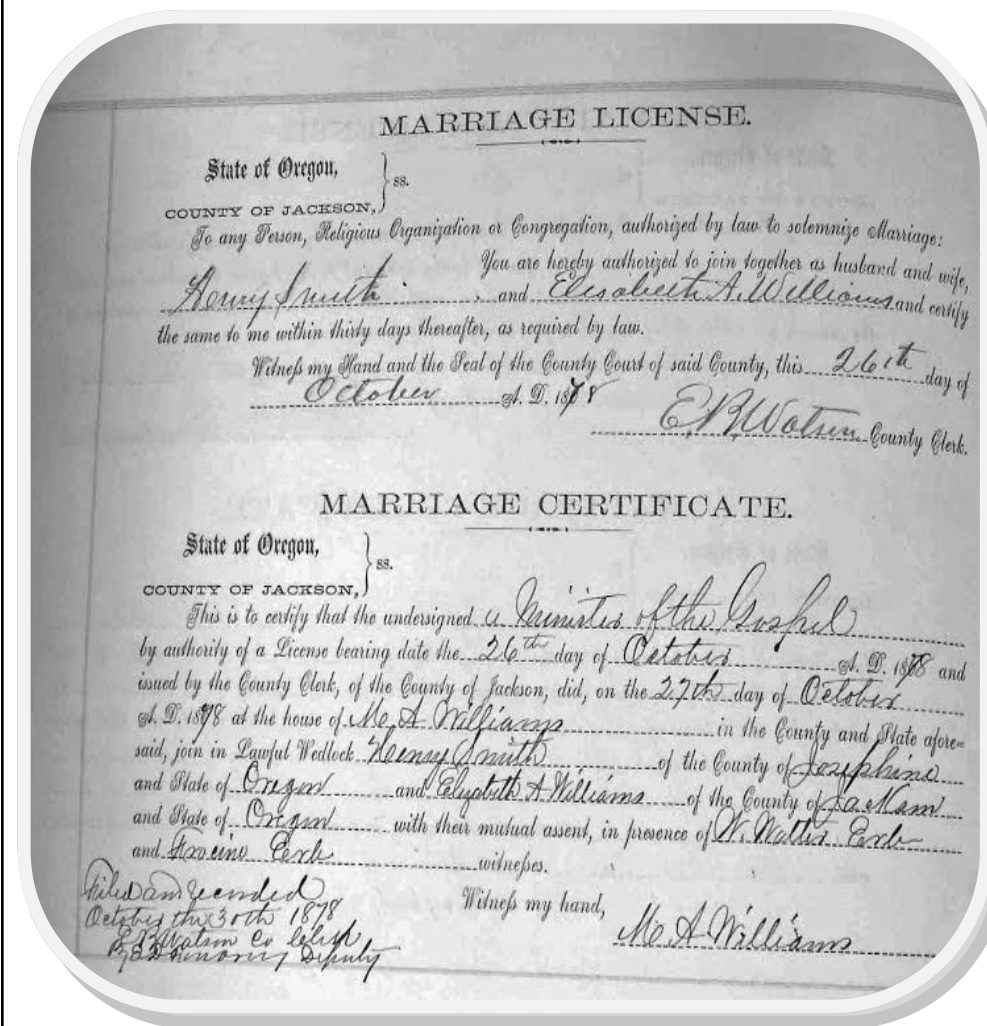 MARRIAGE LICENSE.
State of Oregon,
ss.
COUNTY OF JACKSON,
To any Person, Religious Organization or Congregation, authorized by law to solemnize Marriage:
You are hereby authorized to join together as husband and wife,
Henry Smith and Elisabeth A. Williams and certify
the same to me within thirty days thereafter, as required by law.
Witness my Hand and the Seal of the County Court of said County, this 26th day of
October A. D. 1878
E. B. Watson County Clerk.
MARRIAGE CERTIFICATE.
State of Oregon,
ss.
COUNTY OF JACKSON,
This is to certify that the undersigned a Minister of the Gospel
by authority of a License bearing date the 26th day of October A. D. 1878 and
issued by the County Clerk, of the County of Jackson, did, on the 27th day of October
A. D. 1878 at the house of M. A. Williams in the County and State afore=
said, join in Lawful Wedlock Henry Smith of the County of Josephine
and State of Oregon and Elizabeth A Williams of the County of Jackson
and State of Oregon with their mutual assent, in presence of W. Walter
and witnesses.
Filed and recorded
Witness my hand,
October the 30th 1878
M. A. Williams
E B Watson Co Clerk
By Deputy